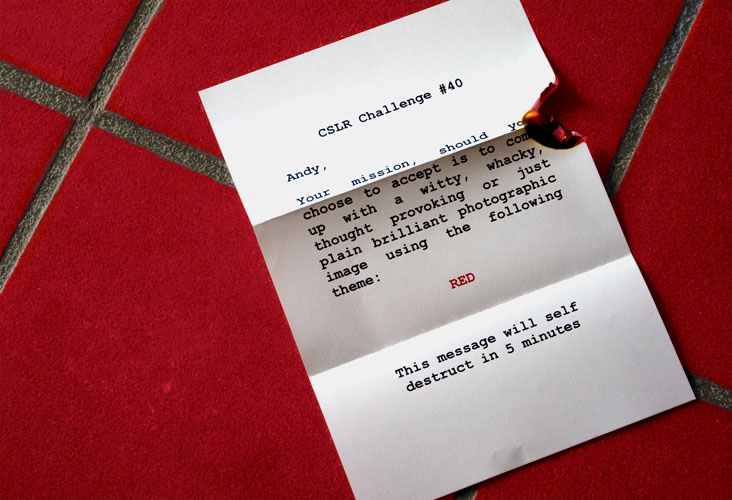 CSLR Challenge #40
Andy,
Your mission, should
choose to accept is to
up with a witty, whacky,
thought provoking or just
plain brilliant photographic
image using the following
theme:
RED
This message will self
destruct in 5 minutes